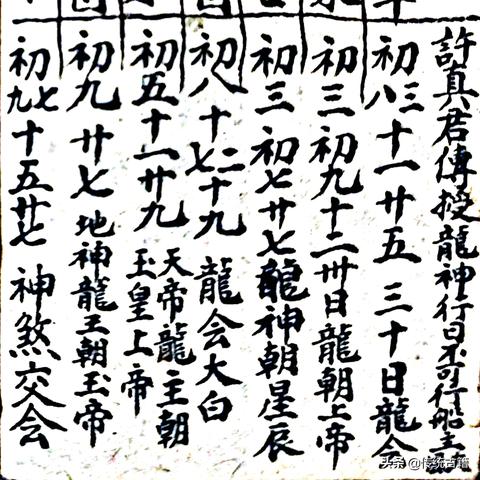 許真君傳授龍神行日不可行船主
初三八十一廿五三十日龍会
初三初九十二卅日龍朝上帝
初三初七廿七龍神朝星辰
初八十二七十九龍会大白
初五十一廿九天帝龍王朝玉皇上帝
初九廿七地神龍王朝玉帝
初七九十五廿七神煞交会
头条 @传统古籍